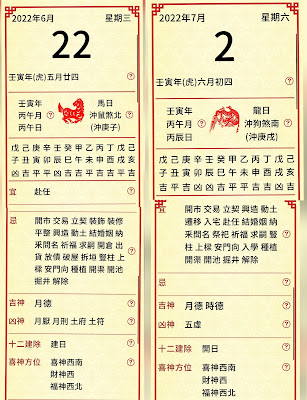 2022年6月 星期三
22
壬寅年(虎)五月廿四
壬寅年
丙午月
丙午日
馬日
沖鼠煞北
(沖庚子)
戊己庚辛壬癸甲乙丙丁戊己
子丑寅卯辰巳午未申酉戌亥
凶吉平吉
宜 赴任
忌 開市 交易 立契 裝飾 裝修
平整 興造 動土 結婚姻 納
釆問名 祈福 求嗣 開倉 出
貨 放債 破屋 拆垣 豎柱 上
樑 安門 向 種植 開渠 開池
掘井 解除
吉神 月德
凶神 月厭 月刑 土府 土符
十二建除 建日
喜神方位 喜神西南
財神西
福神西北
2022年7月 星期六
2
壬寅年(虎)六月初四
壬寅年
丙午月
丙辰日
龍日
沖狗煞南
(沖庚戌)
戊己庚辛壬癸甲乙丙丁戊己
子丑寅卯辰巳午未申酉戌亥
宜 開市 交易 立契 興造 動土
遷移 入宅 赴任 結婚姻 納
釆問名 祭祀 祈福 求嗣 豎
柱 上樑 安門 向 入學 種植
開渠 開池 掘井 解除
忌
吉神 月德 時德
凶神 五虛
十二建除 開日
喜神方位 喜神西南
財神西
福神西北